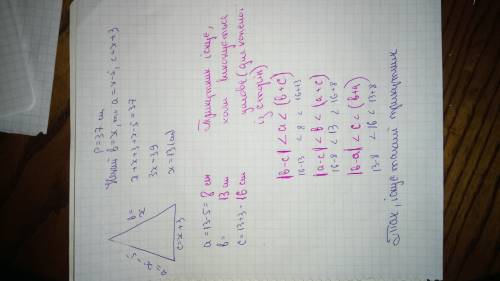 P=37 см
Нехай b=x, то a=x-5, c=x+3
x+x+3+x-5=37
3x=39
x=13(см)
b=
x
a=
x-5
c=x+3
a=13-5=8 см
b= 13 см
c=13+3=16 см
Трикутник існує,
коли виконується
умова (для кожної
із сторін)
|b-c|<a<(b+c)
16-13 < 8 < 16+13
|a-c|<b<(a+c)
16-8<13<16+8
|b-a|<c<(b+a)
13-8 <16 <13+8
Так, існує такий трикутник